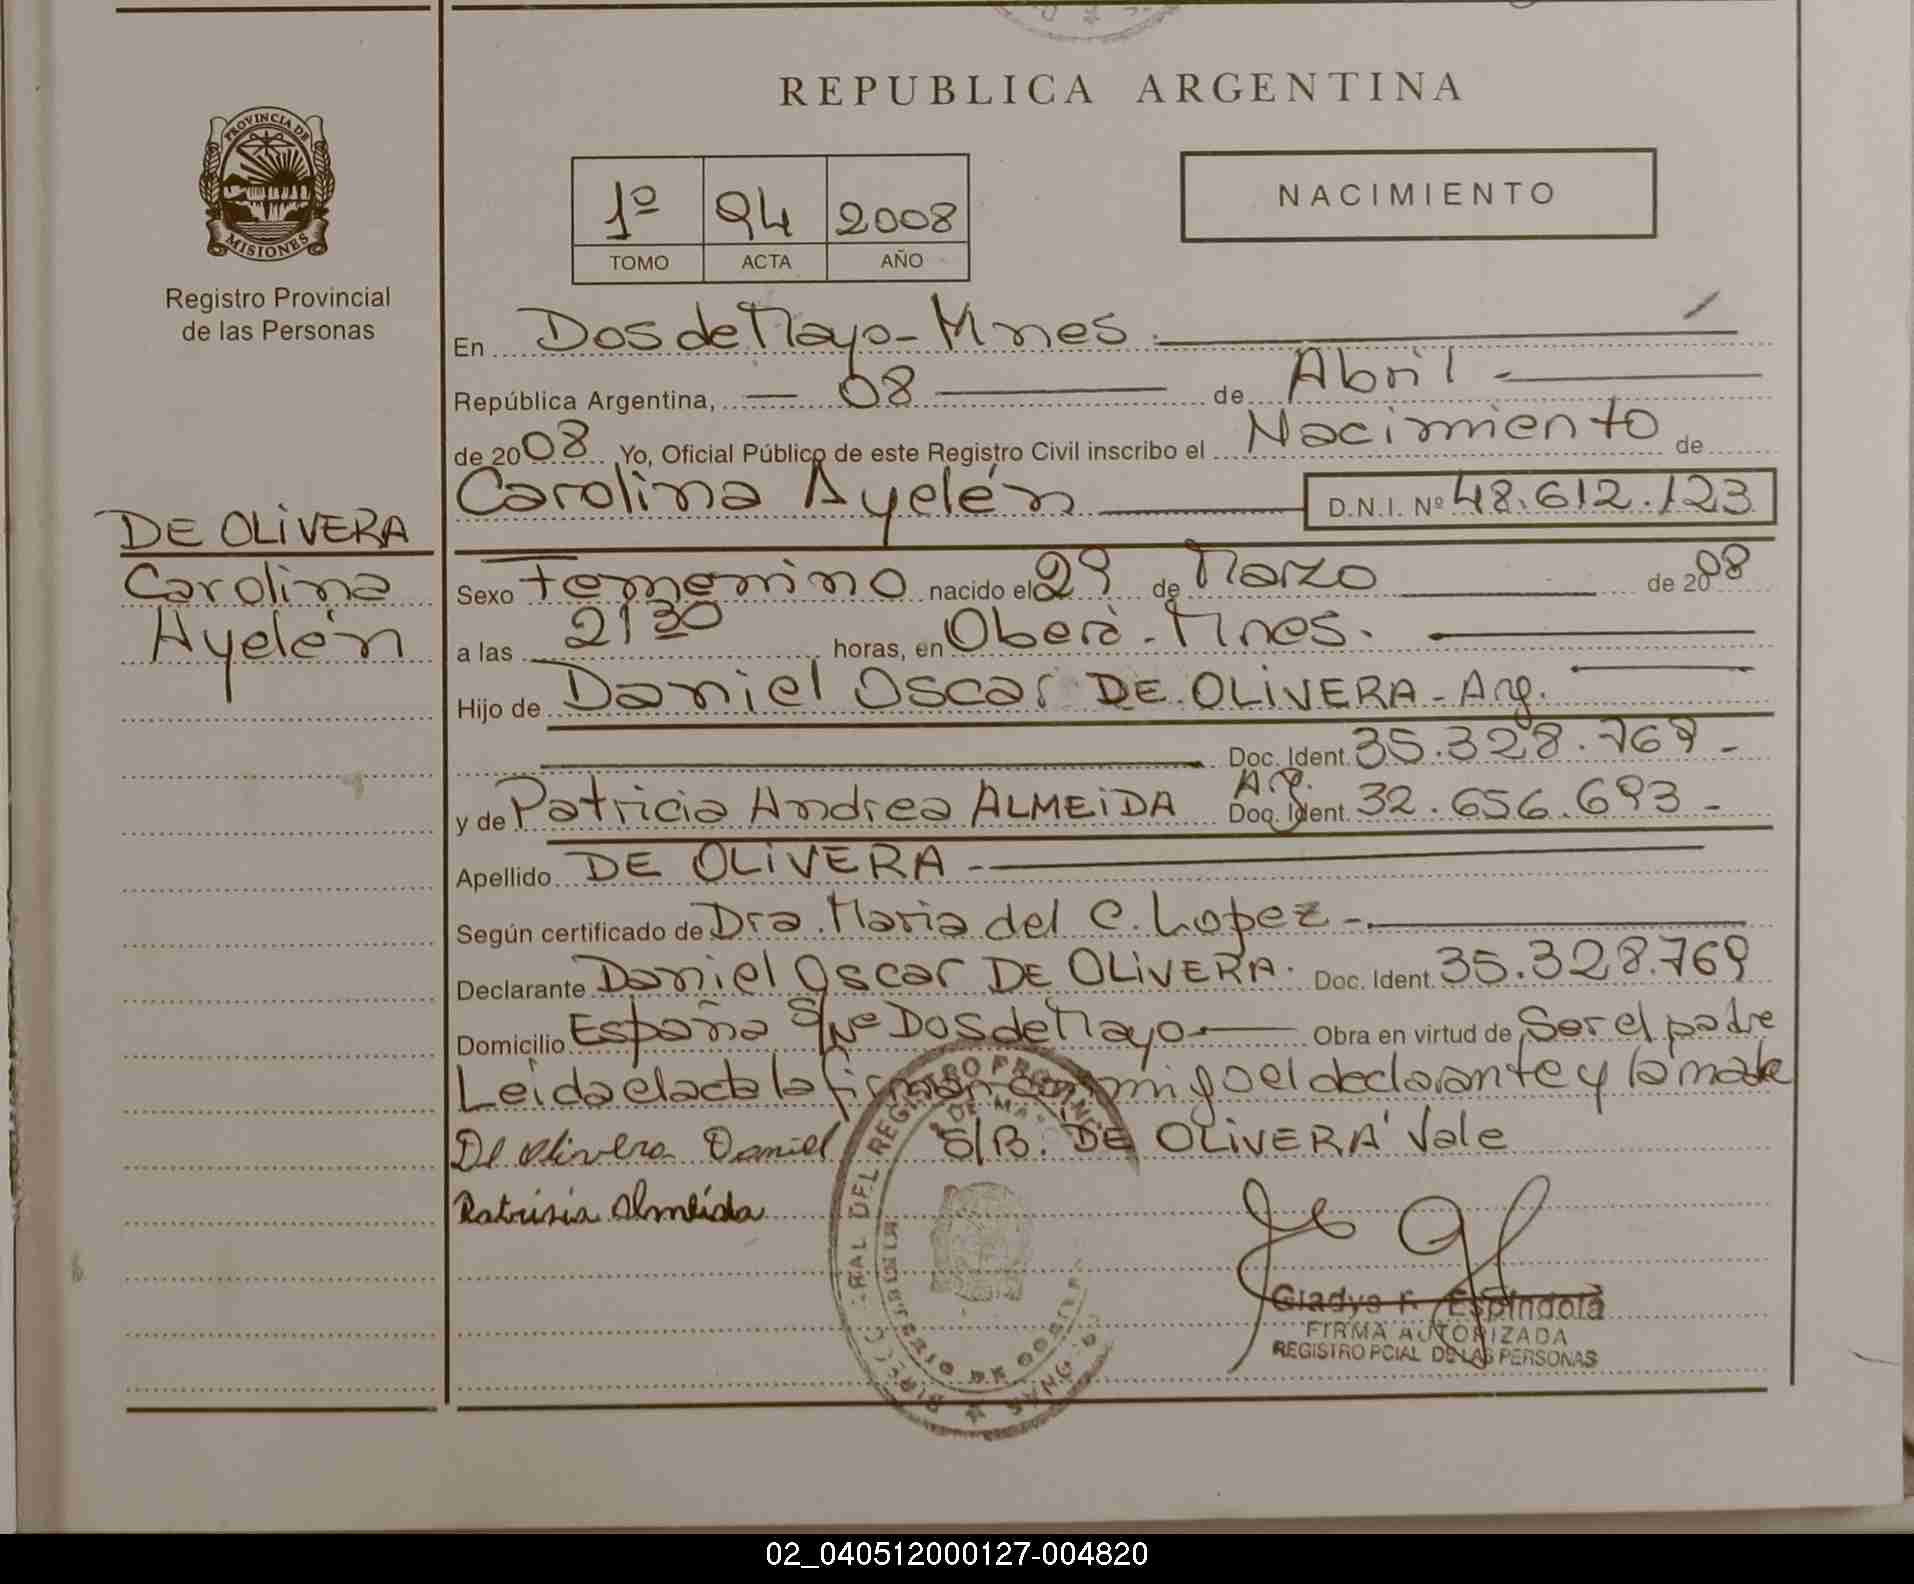 REPUBLICA ARGENTINA
PROVINCIA DE
MISIONES
Registro Provincial
de las Personas
1º 94 2008
TOMO ACTA AÑO
NACIMIENTO
En Dos de Mayo - Mnes.
República Argentina, — 08 — de Abril -
de 2008 Yo, Oficial Público de este Registro Civil inscribo el Nacimiento de
Carolina Ayelén D.N.I. Nº 48.612.123
DE OLIVERA
Carolina
Ayelén
Sexo Femenino nacido el 29 de Marzo de 2008
a las 21 30 horas, en Oberá - Mnes.
Hijo de Daniel Oscar DE OLIVERA - Arg.
Doc. Ident. 35.328.769 -
y de Patricia Andrea ALMEIDA Arg. Doc. Ident. 32.656.693 -
Apellido DE OLIVERA -
Según certificado de Dra. Maria del C. Lopez -
Declarante Daniel Oscar DE OLIVERA. Doc. Ident. 35.328.769
Domicilio España S/Nº Dos de Mayo Obra en virtud de Ser el padre
Leida el acta la firman conmigo el declarante y la madre
De Olivera Daniel S/B. "DE OLIVERA" Vale
Patrisia Almeida
Gladys F. Espindola
FIRMA AUTORIZADA
REGISTRO PCIAL DE LAS PERSONAS
02_040512000127-004820